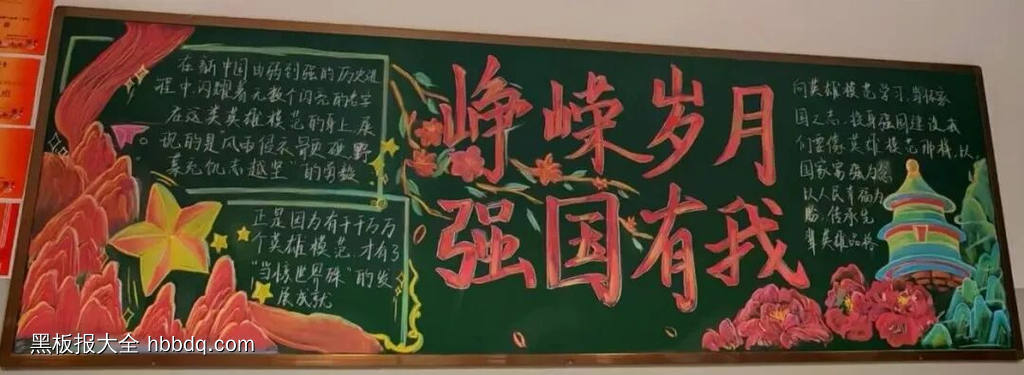 在新中国由弱到强的历史进
程中闪耀着无数个闪亮的名字
在这类英雄模范的身上,展
现的是风雨侵衣骨更硬,野
菜充饥志越坚"的勇毅
正是因为有千千万万
个英雄模范,才有了
"当惊世界殊"的发
展成就
峥嵘岁月
强国有我
向英雄模范学习,当怀家
国之志,投身强国建设,我
们要像英雄模范那样,以
国家富强为
以人民幸福为
传承先
辈英雄品格
黑板报大全 hbbdq.com